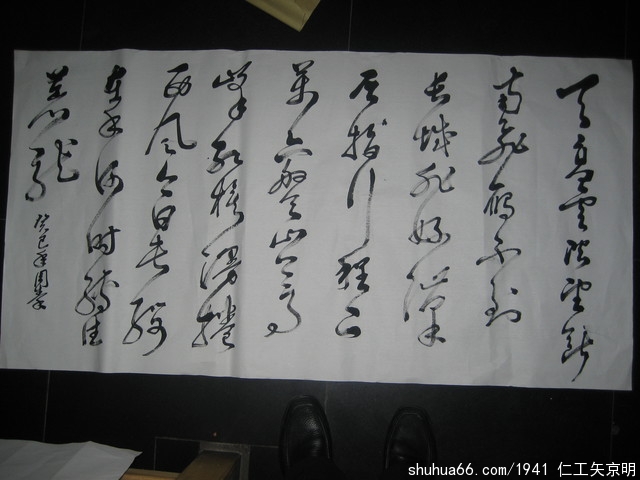 天高云淡望断
南飞雁不到
长城非好汉
屈指行程二
万六盘山上高
峰红旗漫卷
西风今日长缨
在手何时缚住
苍龙
癸巳年
shuhua66.com/1941 仁工矢京明